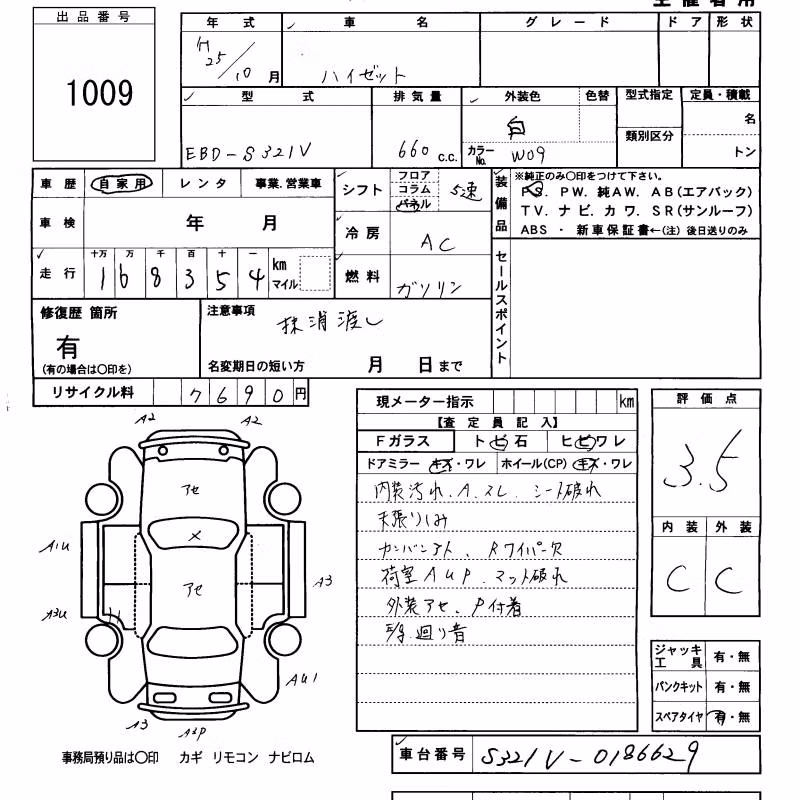 主催者用
出品番号
1009
年式 車名 グレード ドア 形状
H25/10月 ハイゼット
型式 排気量 外装色 色替 型式指定 定員・積載
EBD-S321V 660 c.c. 白 カラーNo. W09 類別区分 名 トン
車歴 自家用 レンタ 事業.営業車
車検 年 月
走行 十万 万 千 百 十 一 km マイル
168354
シフト フロア コラム パネル 5速
冷房 AC
燃料 ガソリン
装備品 ※純正のみ〇印をつけて下さい。
PS. PW. 純AW. AB(エアバック)
TV. ナビ. カワ. SR(サンルーフ)
ABS ・ 新車保証書←(注) 後日送りのみ
セールスポイント
修復歴 箇所
有
(有の場合は〇印を)
注意事項
抹消渡し
名変期日の短い方 月 日まで
リサイクル料 7690円
現メーター指示 km
【査定員記入】
Fガラス トビ石 ヒビワレ
ドアミラー キズ・ワレ ホイール(CP) キズ・ワレ
内装汚れ、A.スレ、シート破れ
天張りしみ
カンバンアト、Rワイパー欠
荷室AUP.マット破れ
外装アセ、P付着
E/g.廻り音
評価点
3.5
内装 外装
C C
ジャッキ工具 有・無
パンクキット 有・無
スペアタイヤ 有・無
A2 A2
アセ
メ
アセ
A1U
A3U
A3
AU1
A3
A3P
事務局預り品は〇印 カギ リモコン ナビロム
車台番号 S321V-0186629